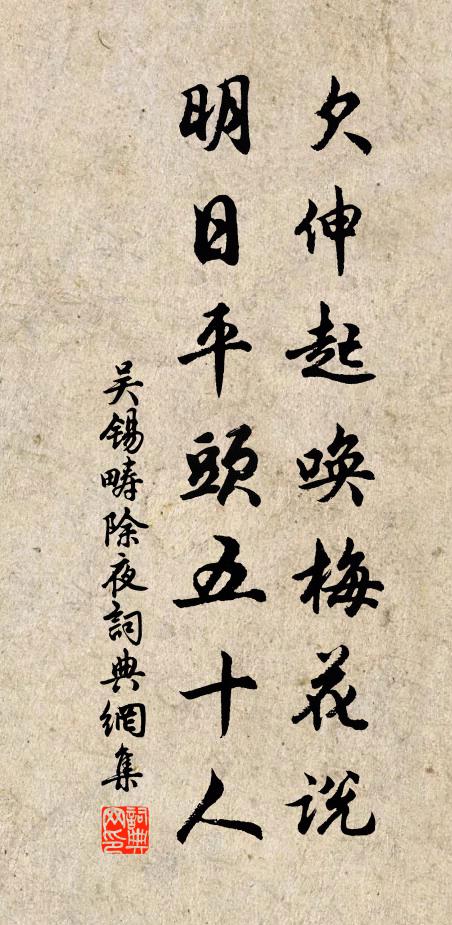 欠伸起唤梅花说
明日平頭五十人
吴锡畴除夜詞典網集
詞典
网印